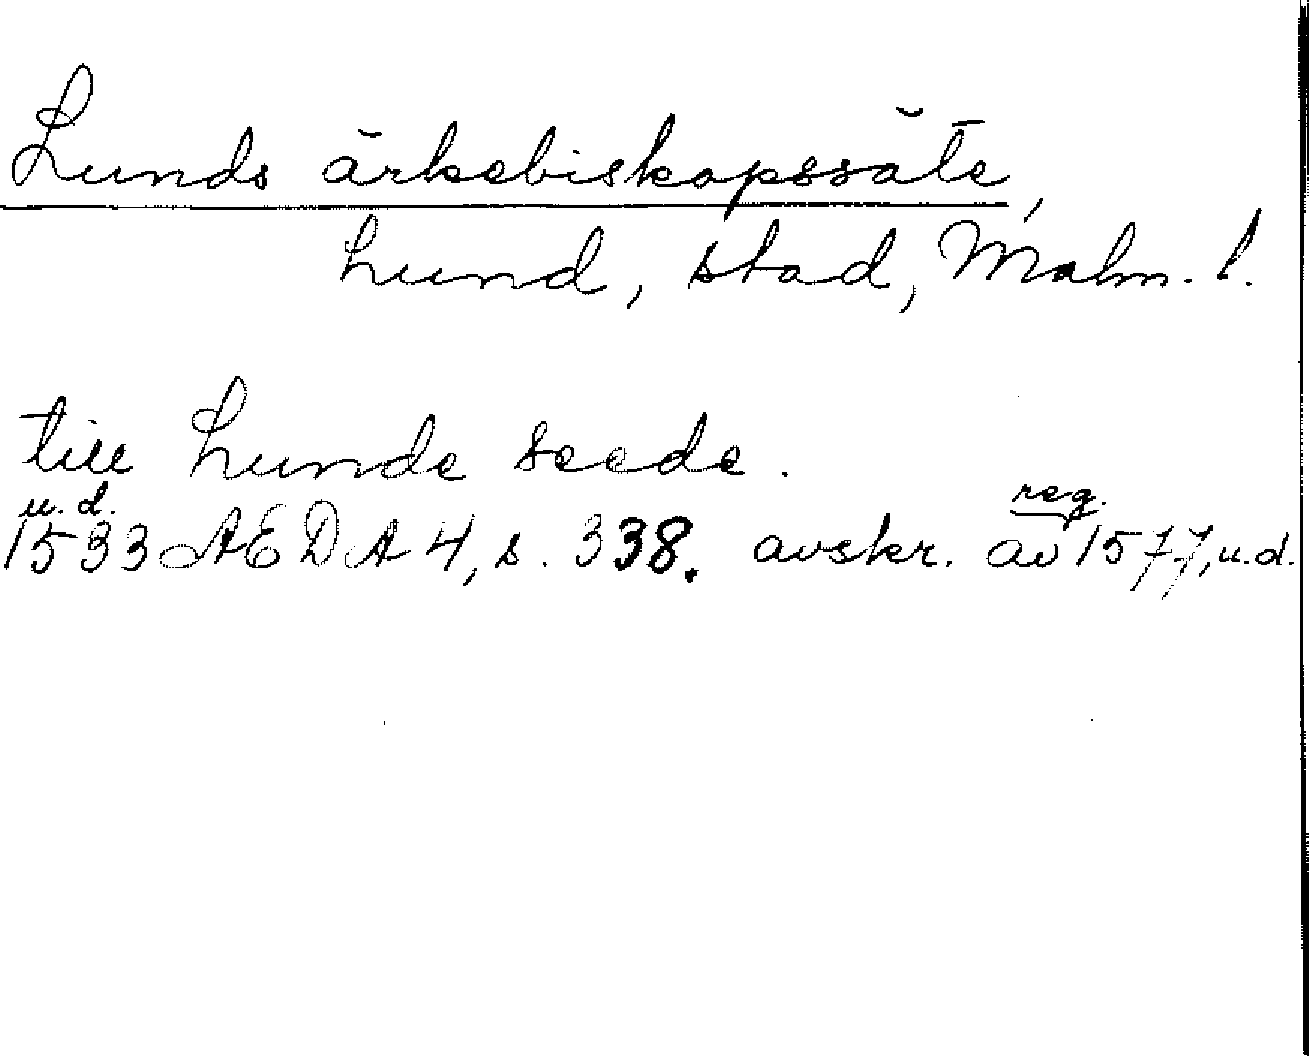 Lunds ärkebiskopssäte,
Lund, stad, Malm. l.
till Lunde seede.
u. d. reg.
1533 AEDA 4, s. 338. avskr. av 1577, u.d.